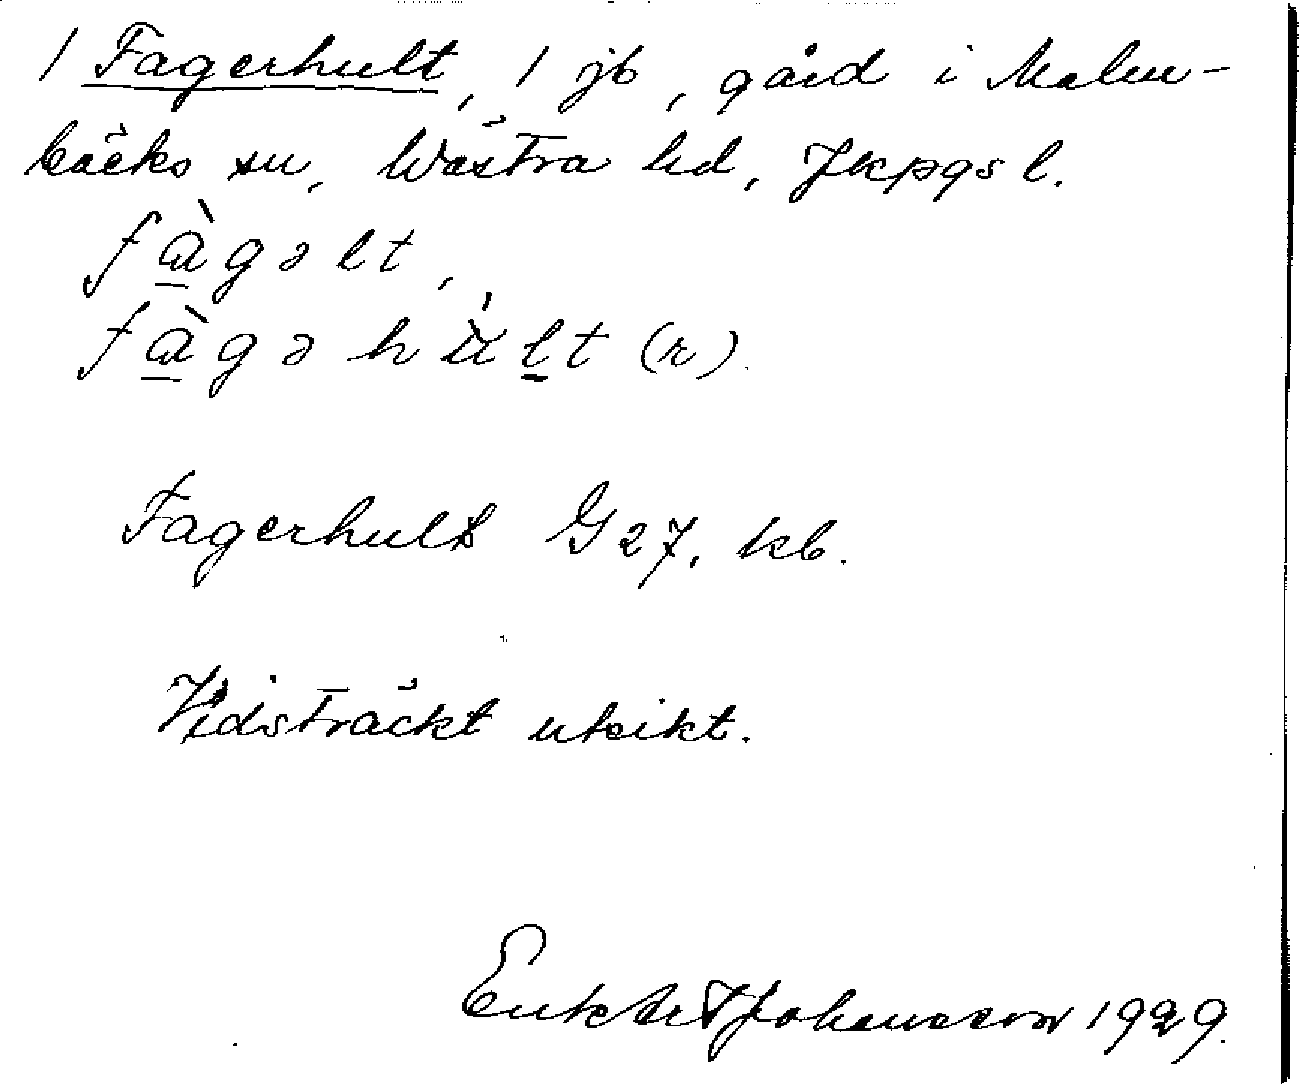 1 Fagerhult, 1 jb, gård i Malm-
bäcks sn, Wästra hd, Jkpgs l.
fàgəlt,
fàgəhùlt (r).
Fagerhult G27, kb.
Vidsträckt utsikt.
Johansson 1929.